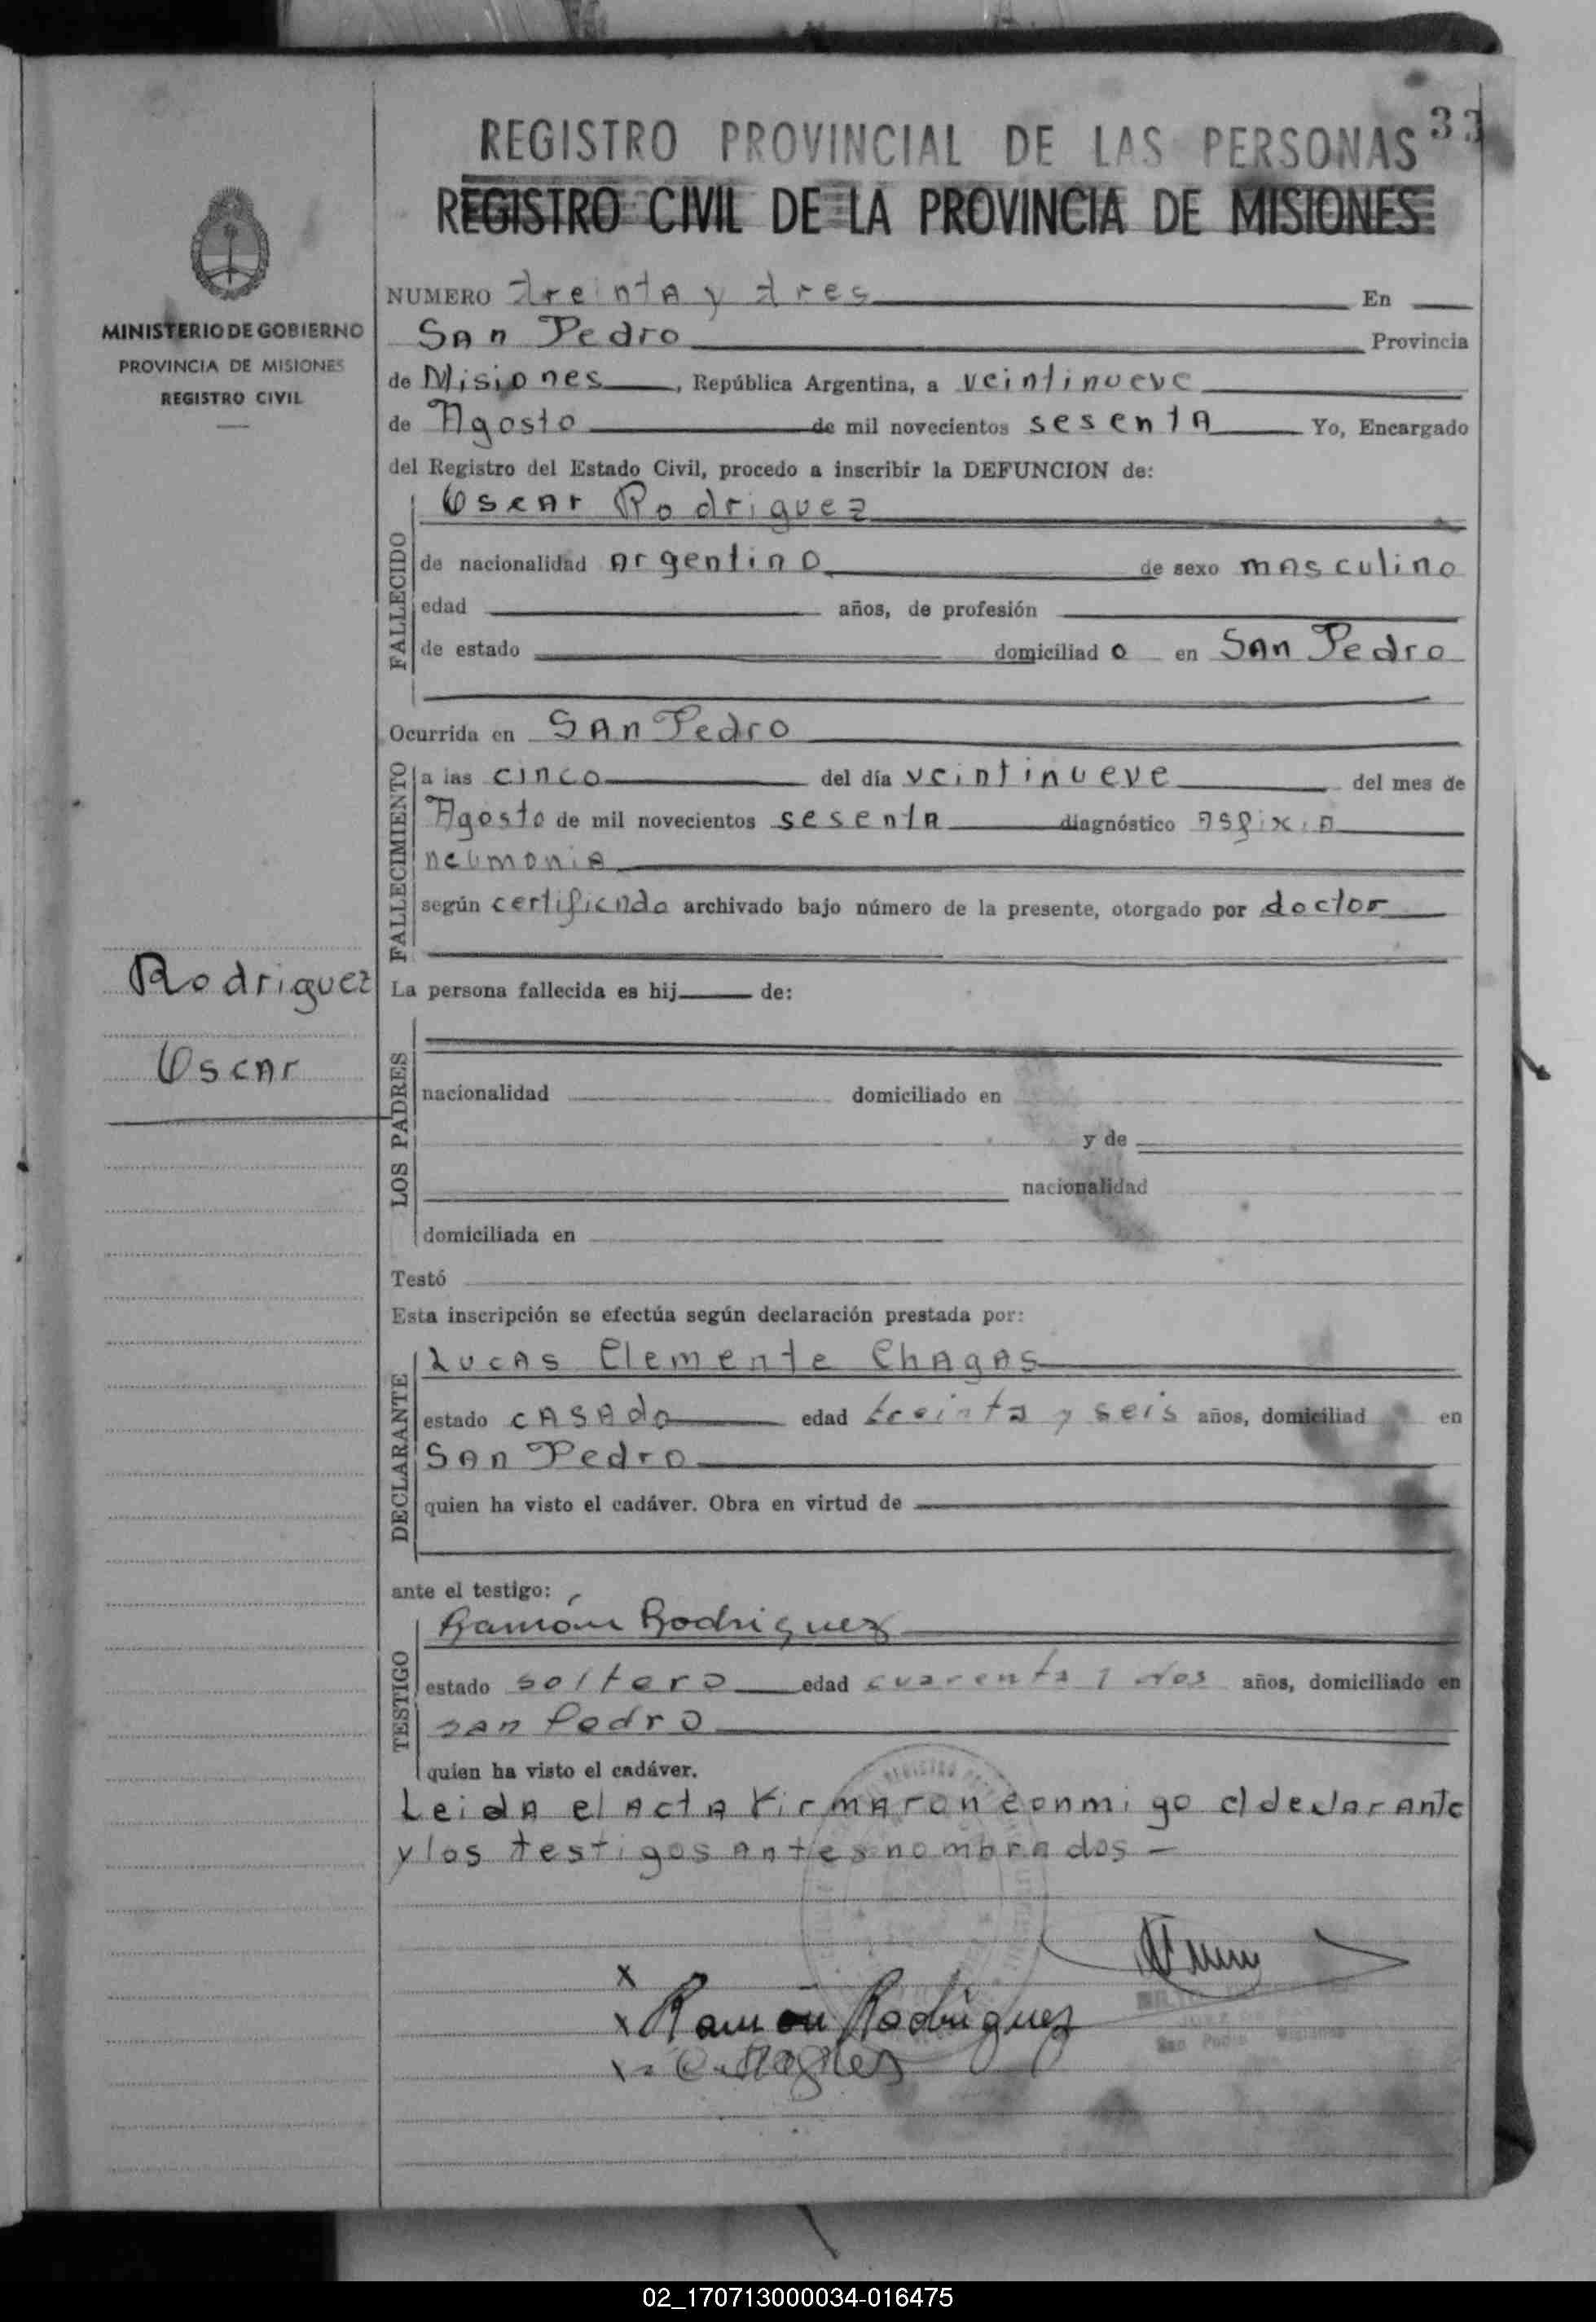 33
REGISTRO PROVINCIAL DE LAS PERSONAS
REGISTRO CIVIL DE LA PROVINCIA DE MISIONES
MINISTERIO DE GOBIERNO
PROVINCIA DE MISIONES
REGISTRO CIVIL
NUMERO treinta y tres En
San Pedro Provincia
de Misiones, República Argentina, a veintinueve
de Agosto de mil novecientos sesenta Yo, Encargado
del Registro del Estado Civil, procedo a inscribir la DEFUNCION de:
FALLECIDO
Oscar Rodriguez
de nacionalidad argentino de sexo masculino
edad años, de profesión
de estado domiciliado en San Pedro
Ocurrida en San Pedro
FALLECIMIENTO
a las cinco del día veintinueve del mes de
Agosto de mil novecientos sesenta diagnóstico asfixia
neumonia
según certificado archivado bajo número de la presente, otorgado por doctor
Rodriguez
Oscar
La persona fallecida es hij de:
LOS PADRES
nacionalidad domiciliado en
y de
nacionalidad
domiciliada en
Testó
Esta inscripción se efectúa según declaración prestada por:
DECLARANTE
Lucas Clemente Chagas
estado casado edad treinta y seis años, domiciliad en
San Pedro
quien ha visto el cadáver. Obra en virtud de
ante el testigo:
TESTIGO
Ramón Rodriguez
estado soltero edad cuarenta y dos años, domiciliado en
San Pedro
quien ha visto el cadáver.
Leida el acta firmaron conmigo el declarante
y los testigos antes nombrados -
x
x Ramón Rodriguez
San Pedro Misiones
02_170713000034-016475